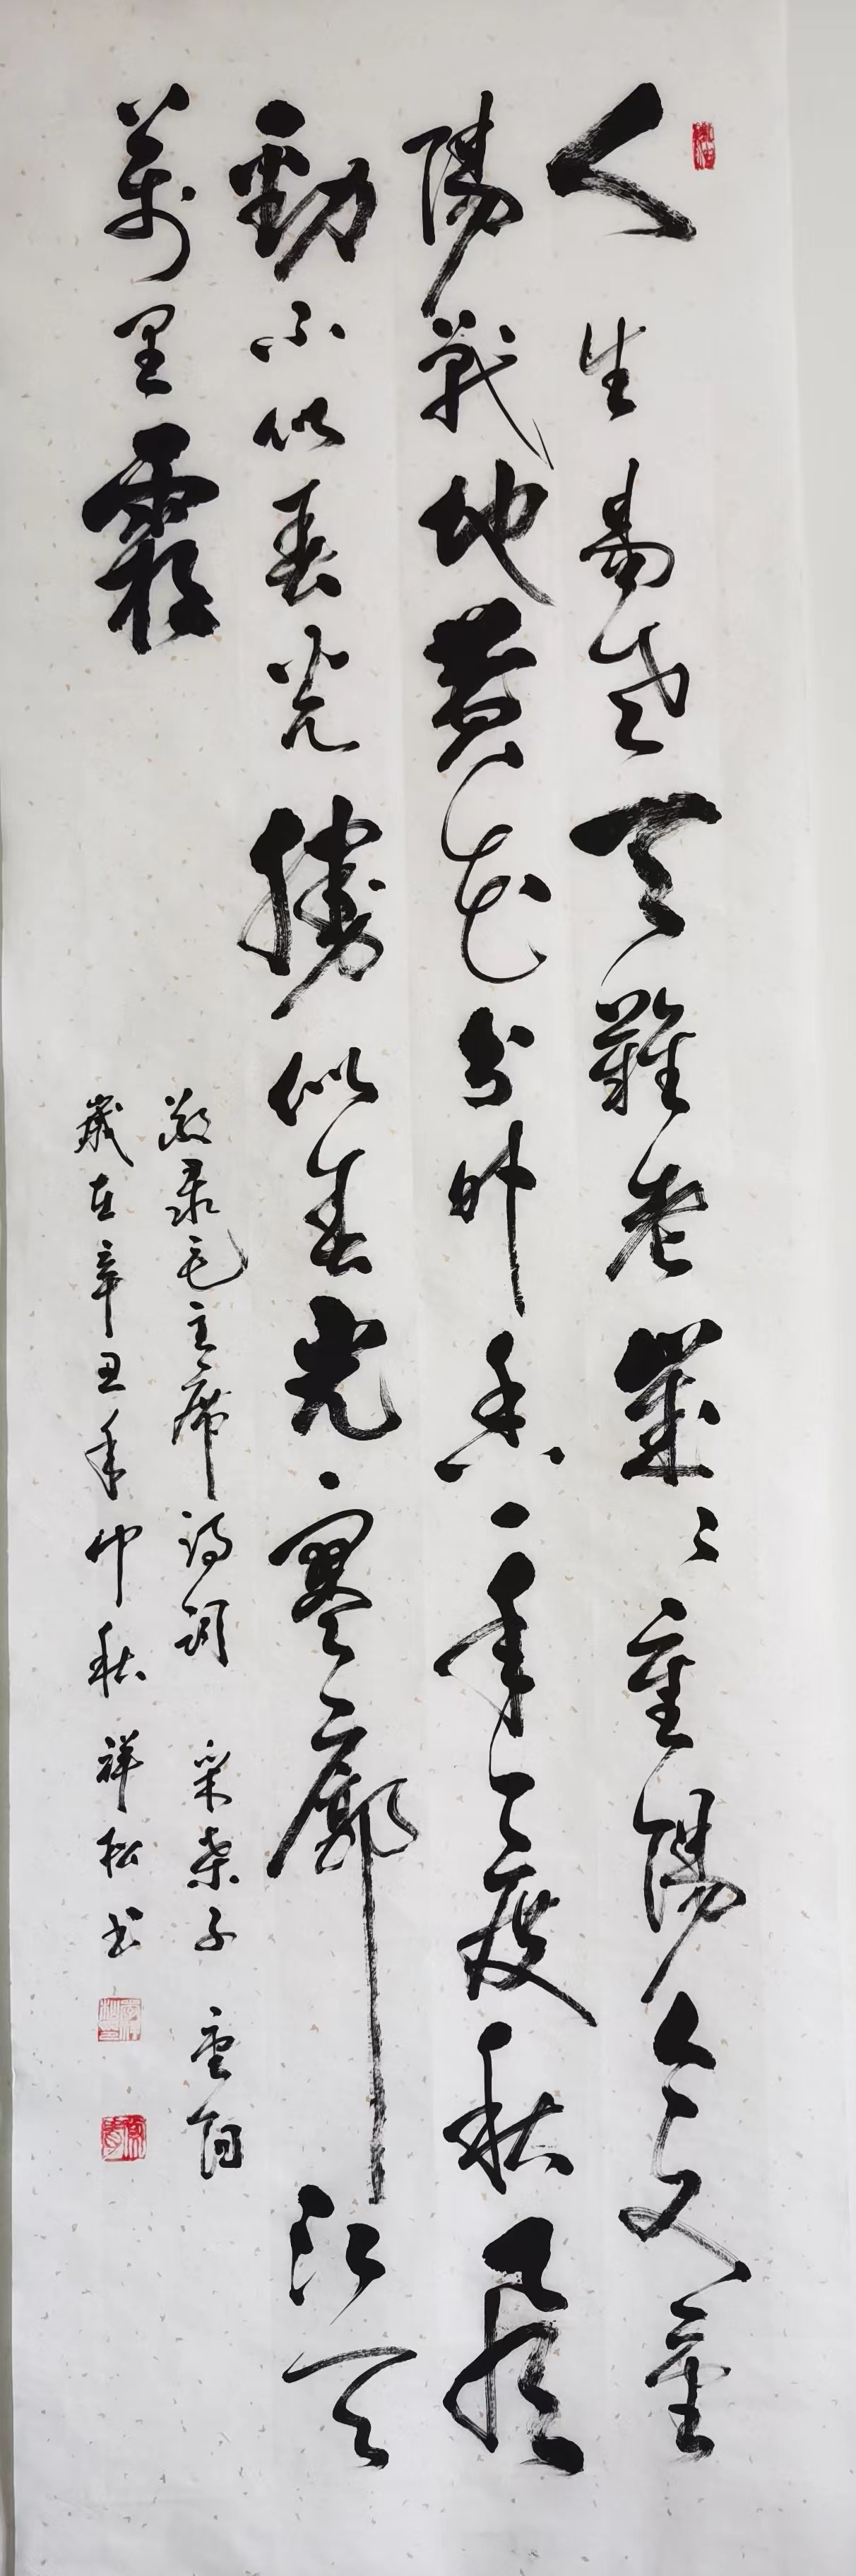 人生易老天難老歲〻重陽今又重
陽戰地黄花分外香一年一度秋風
勁不似春光勝似春光寥廓江天
萬里霜
敬录毛主席诗词 采桑子 重阳
歲在辛丑年仲秋 祥松书